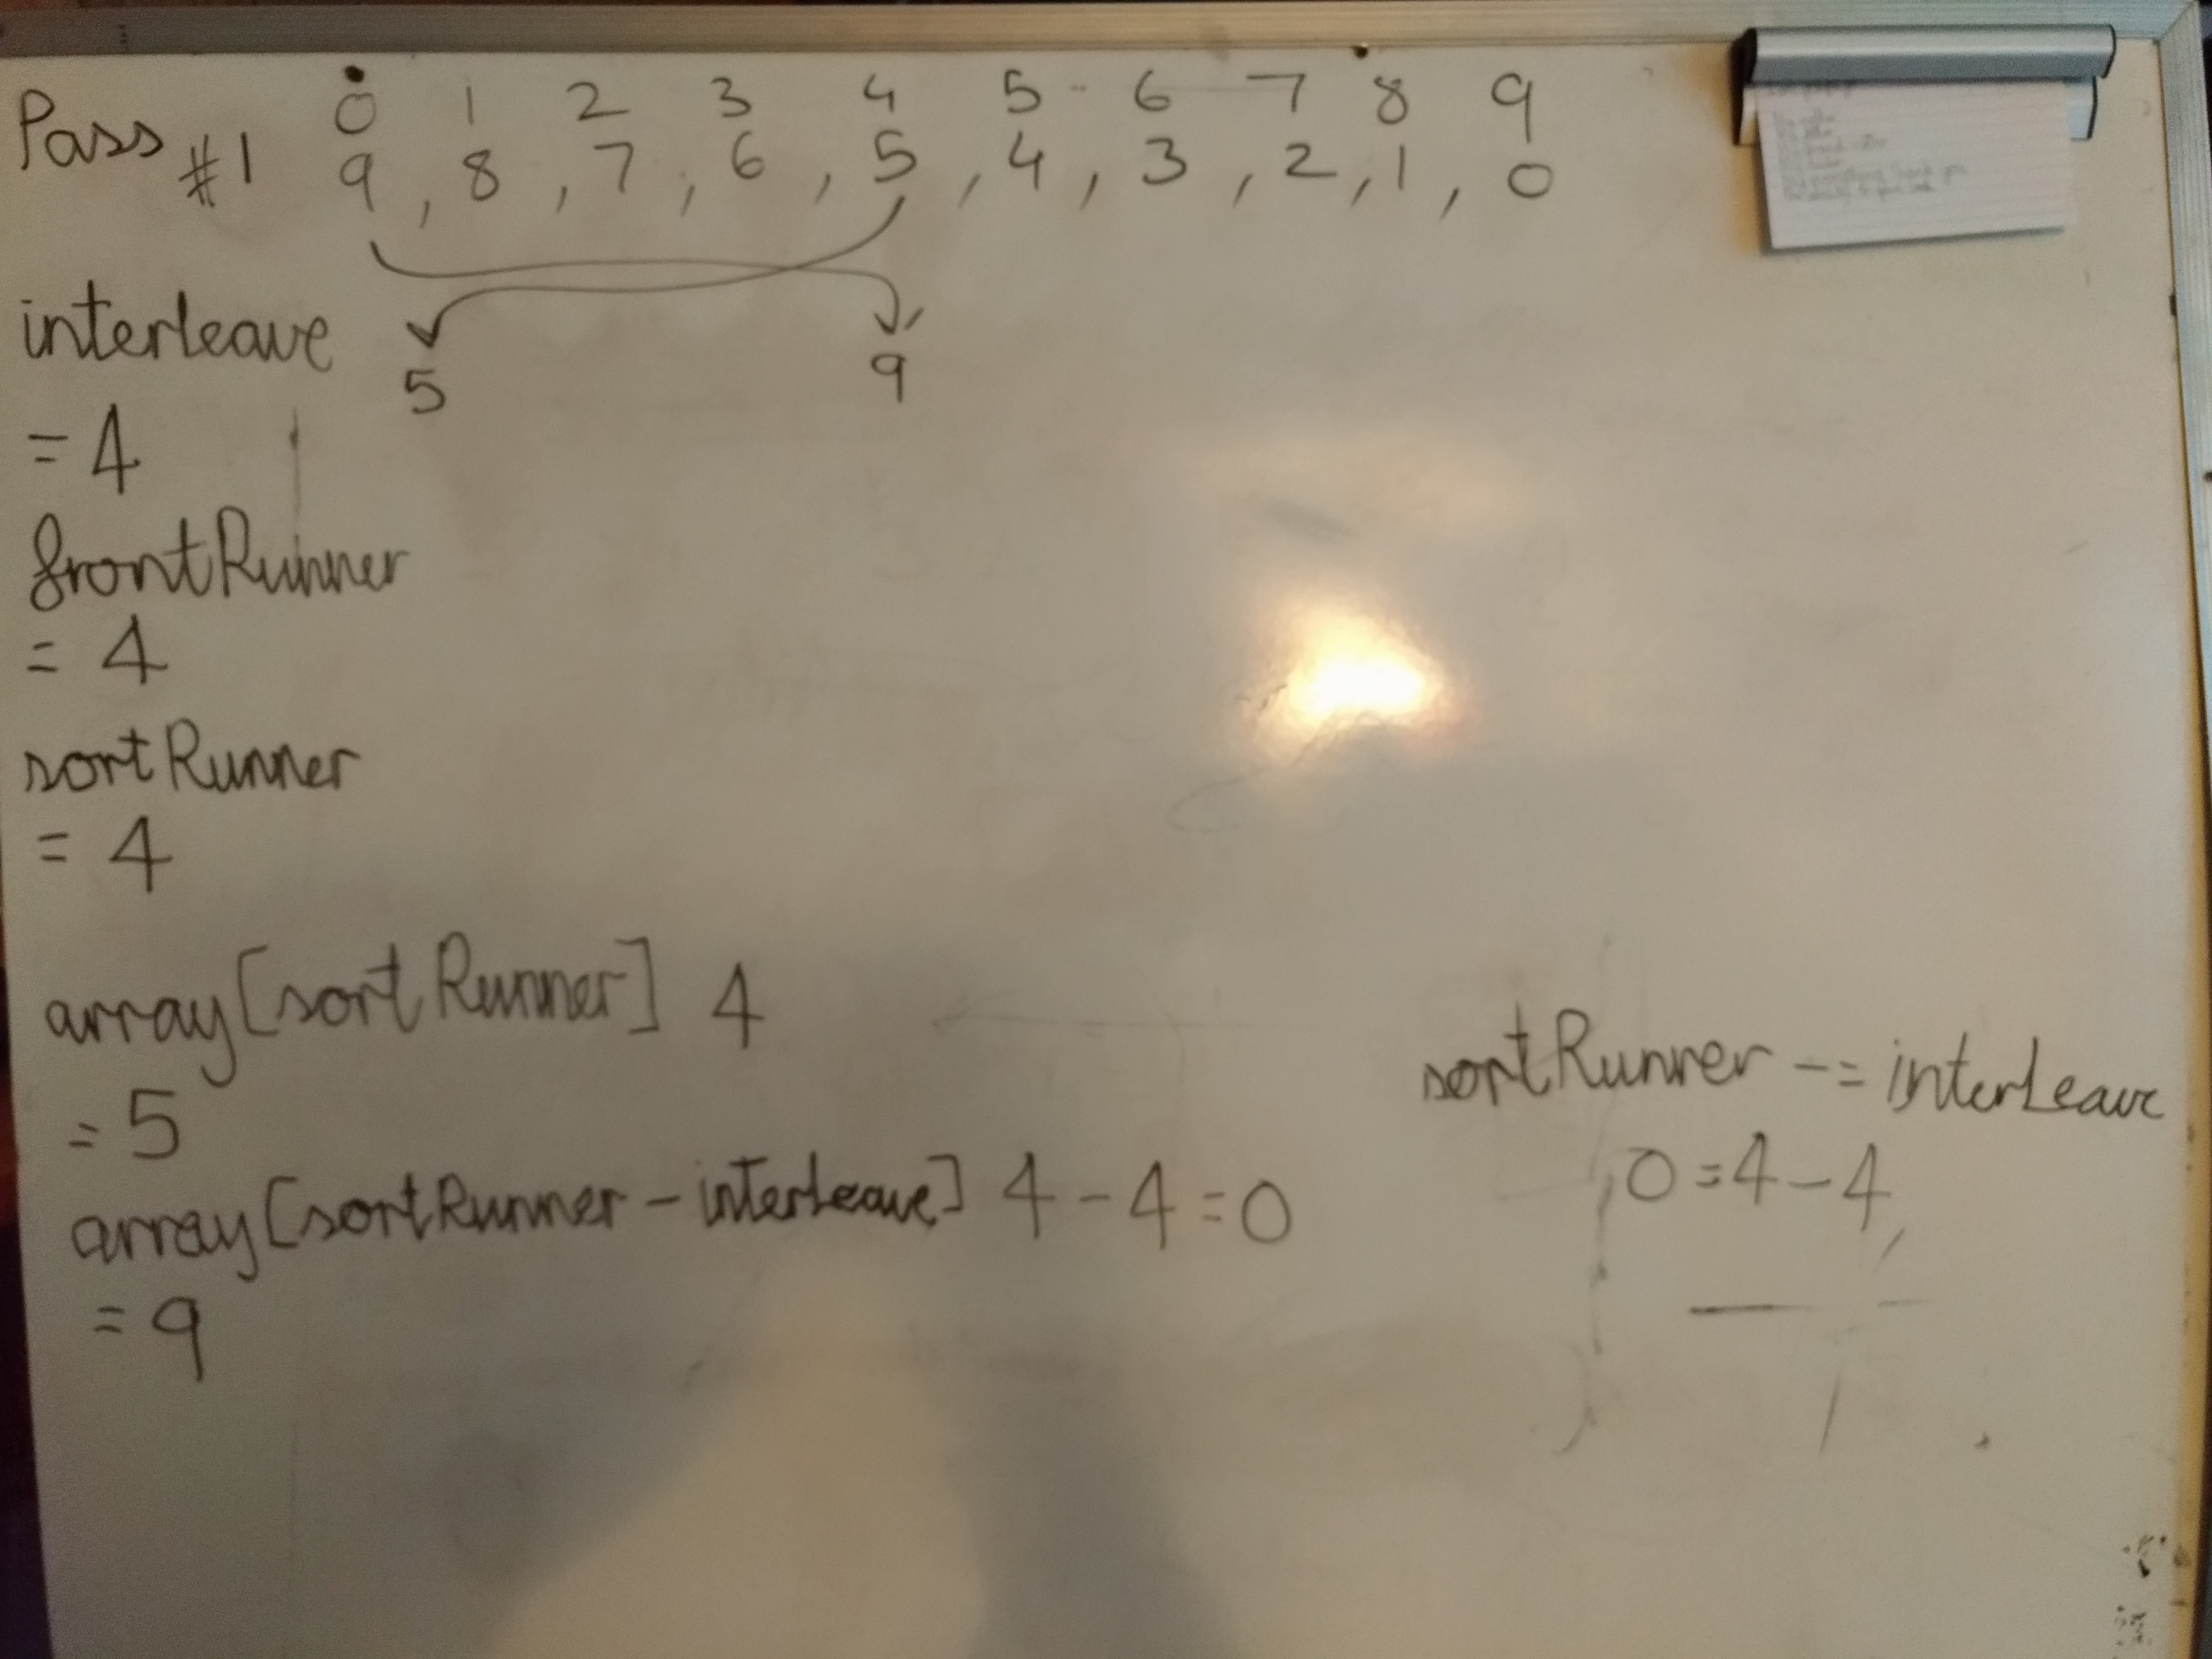 0 1 2 3 4 5 6 7 8 9
Pass #1 9 , 8 , 7 , 6 , 5 , 4 , 3 , 2 , 1 , 0
interleave
5 9
= 4
frontRunner
= 4
sortRunner
= 4
array[sortRunner] 4
= 5
array[sortRunner - interLeave] 4 - 4 = 0
= 9
sortRunner -= interLeave
0 = 4 - 4